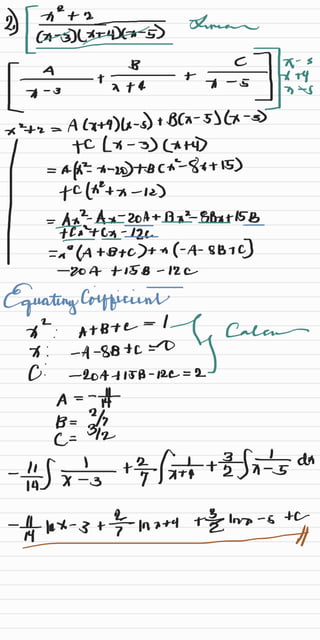 2) x² + 2 / (x-3)(x+4)(x-5) Linear
[ A / x-3 + B / x+4 + C / x-5 ] x-3 x+4 x-5
x²+2 = A(x+4)(x-5) + B(x-5)(x-3)
+C(x-3)(x+4)
= A(x²-x-20)+B(x²-8x+15)
+C(x²+x-12)
= Ax²-Ax-20A+Bx²-8Bx+15B
+Cx²+Cx-12C
= x²(A+B+C)+x(-A-8B+C)
-20A +15B -12C
Equating Coefficient
x²: A+B+C = 1
x: -A-8B+C=0
C: -20A+15B-12C=2
A = -11/14
B= 2/7
C= 3/2
-11/14 ∫ 1/x-3 + 2/7 ∫ 1/x+4 + 3/2 ∫ 1/x-5 dx
-11/14 ln x-3 + 2/7 ln x+4 + 3/2 ln x-5 +C